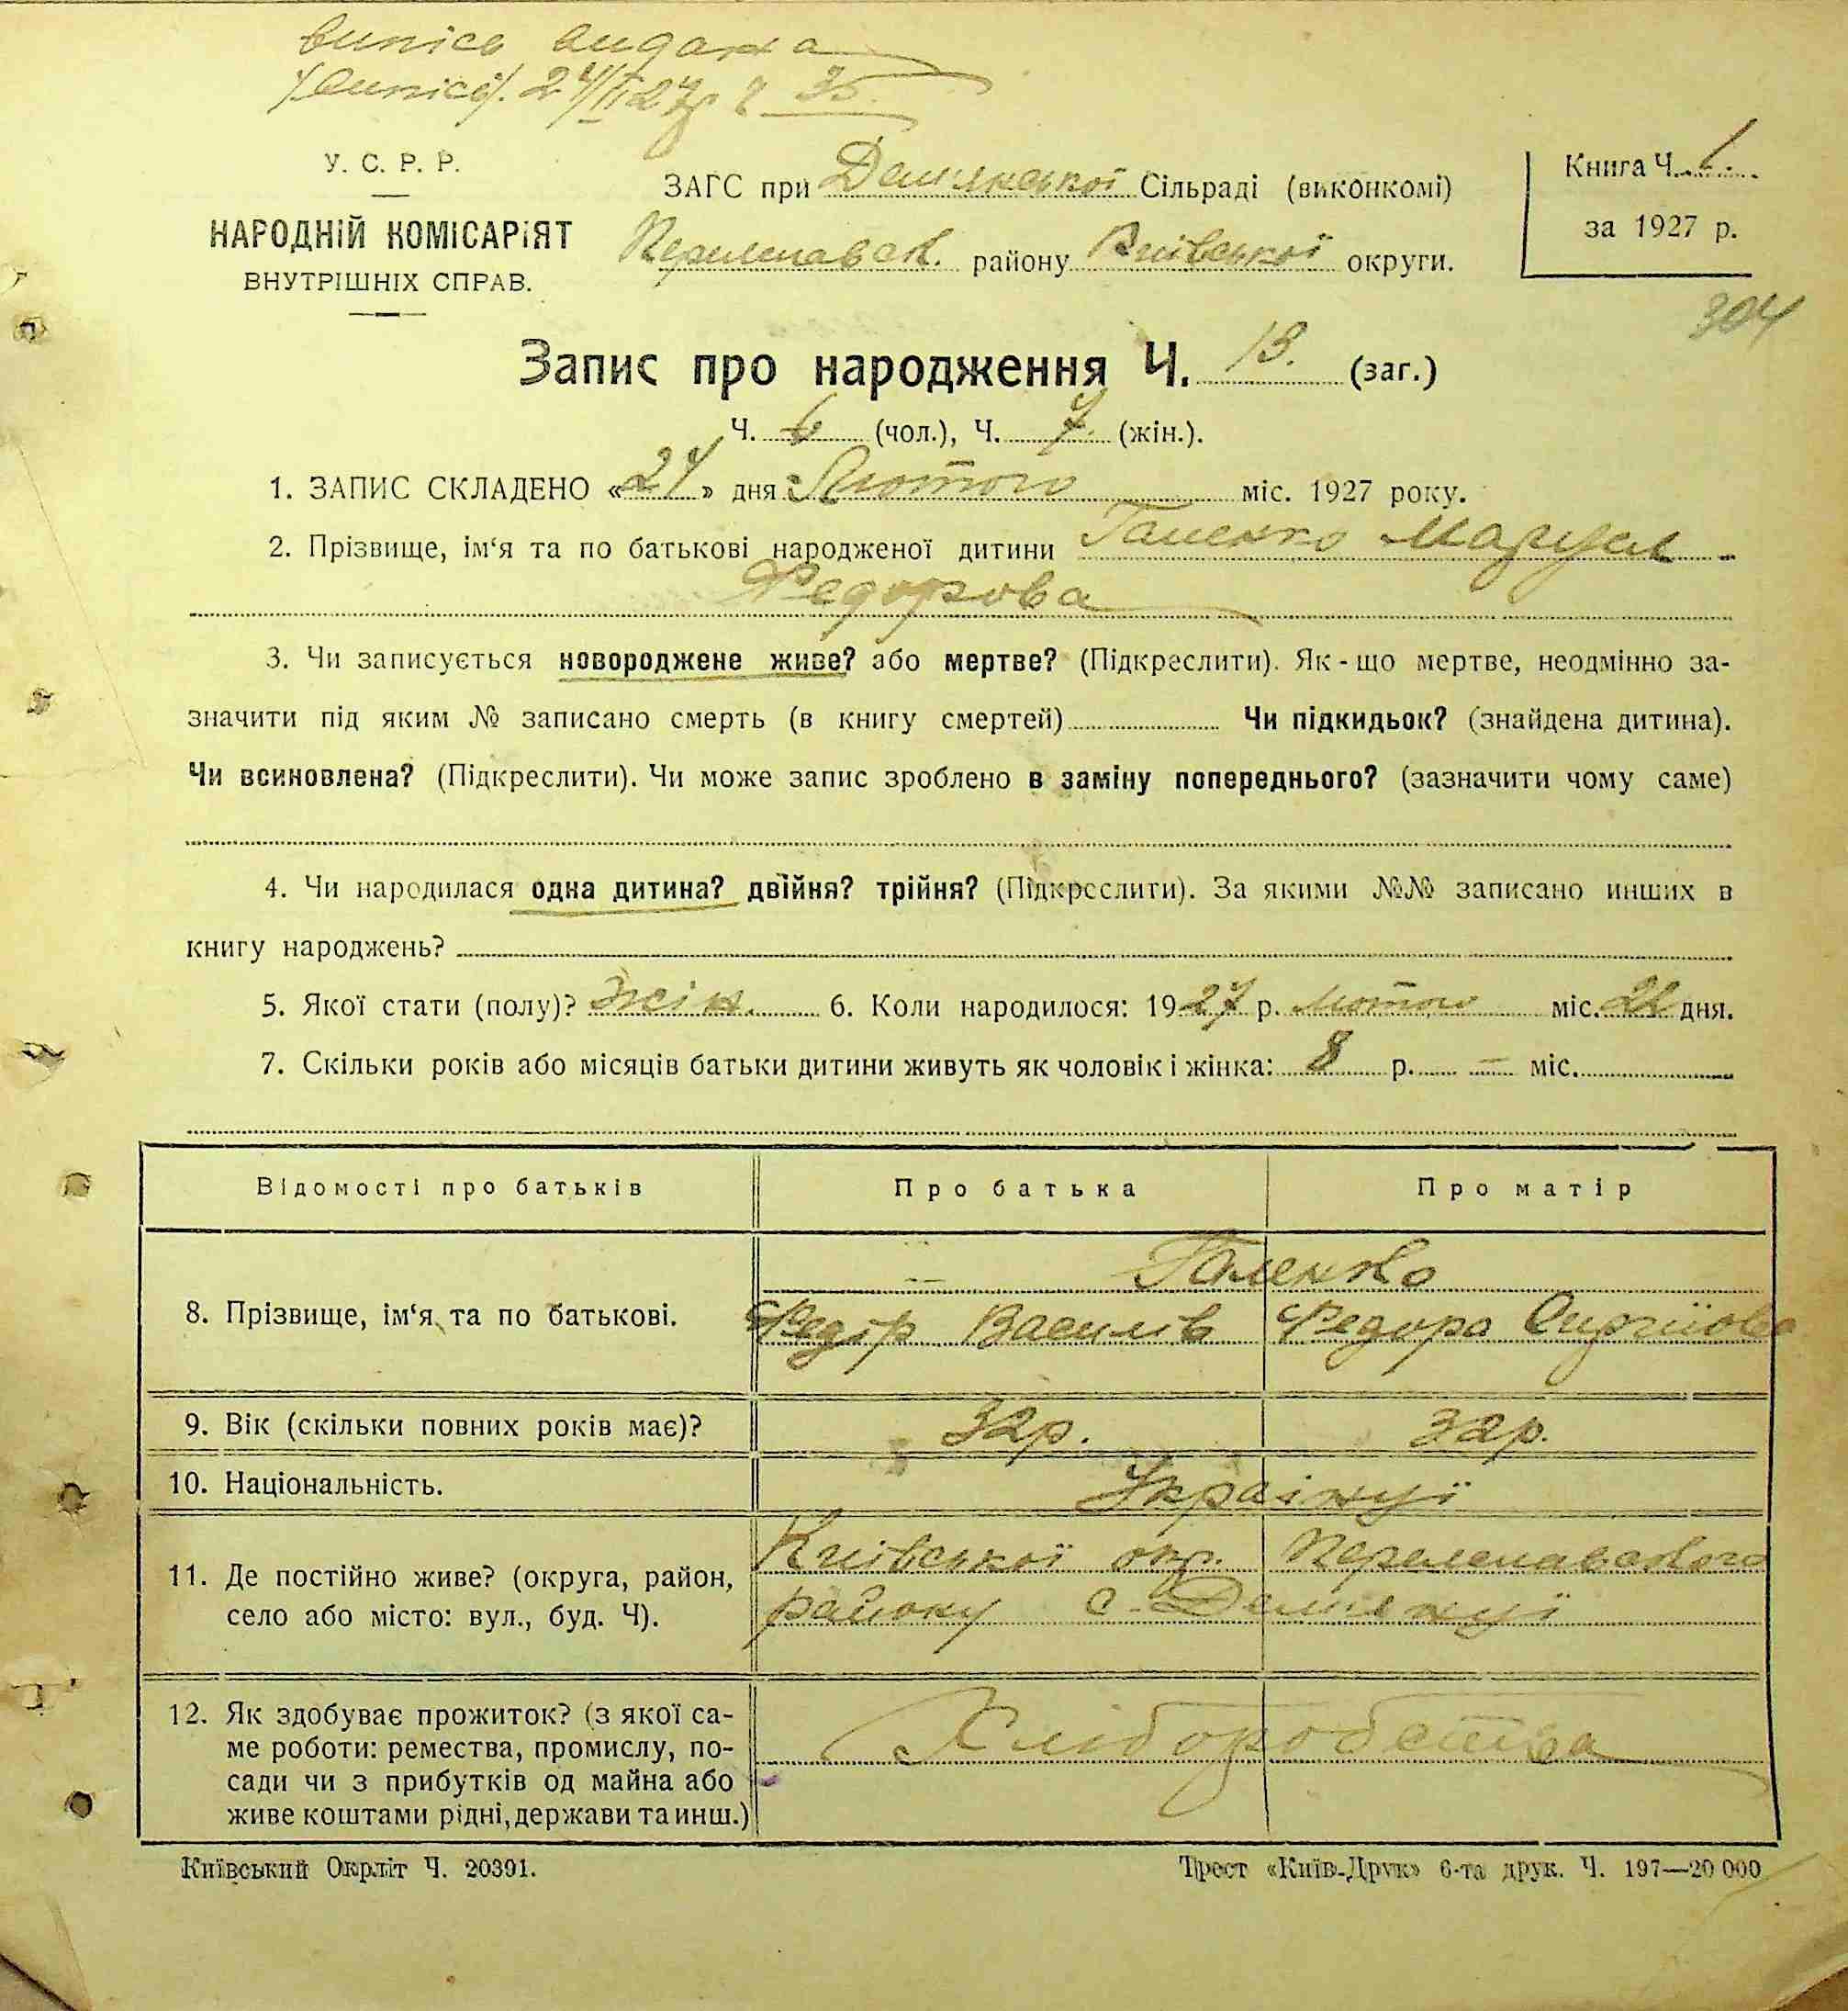 випись видана
24/II 27р ч 35.
У. С. Р. Р.
НАРОДНІЙ КОМІСАРІЯТ
ВНУТРІШНІХ СПРАВ.
ЗАГС при Демянської Сільраді (виконкомі)
Переяславськ. району Київської округи.
Книга Ч. 1.
за 1927 р.
304
Запис про народження Ч. 13. (заг.)
Ч. 6 (чол.), Ч. 7. (жін.).
1. ЗАПИС СКЛАДЕНО «24» дня Лютого міс. 1927 року.
2. Прізвище, ім‘я та по батькові народженої дитини Галенко Маруся
Федорова
3. Чи записується новороджене живе? або мертве? (Підкреслити). Як-що мертве, неодмінно за-
значити під яким № записано смерть (в книгу смертей) Чи підкидьок? (знайдена дитина).
Чи всиновлена? (Підкреслити). Чи може запис зроблено в заміну попереднього? (зазначити чому саме)
4. Чи народилася одна дитина? двійня? трійня? (Підкреслити). За якими №№ записано инших в
книгу народжень?
5. Якої стати (полу)? жін. 6. Коли народилося: 1927 р. лютого міс. 22 дня.
7. Скільки років або місяців батьки дитини живуть як чоловік і жінка: 8 р. — міс.
Відомості про батьків Про батька Про матір
8. Прізвище, ім‘я та по батькові.
Галенко
Федір Василів Федора Сергійова
9. Вік (скільки повних років має)? 32р. 32р.
10. Національність. Українці
11. Де постійно живе? (округа, район,
село або місто: вул., буд. Ч).
Київської окр. Переяславського
району с. Демянці
12. Як здобуває прожиток? (з якої са-
ме роботи: ремества, промислу, по-
сади чи з прибутків од майна або
живе коштами рідні, держави та инш.)
Хліборобства
Київський Окрліт Ч. 20391.
Трест «Київ-Друк» 6-та друк. Ч. 197—20 000